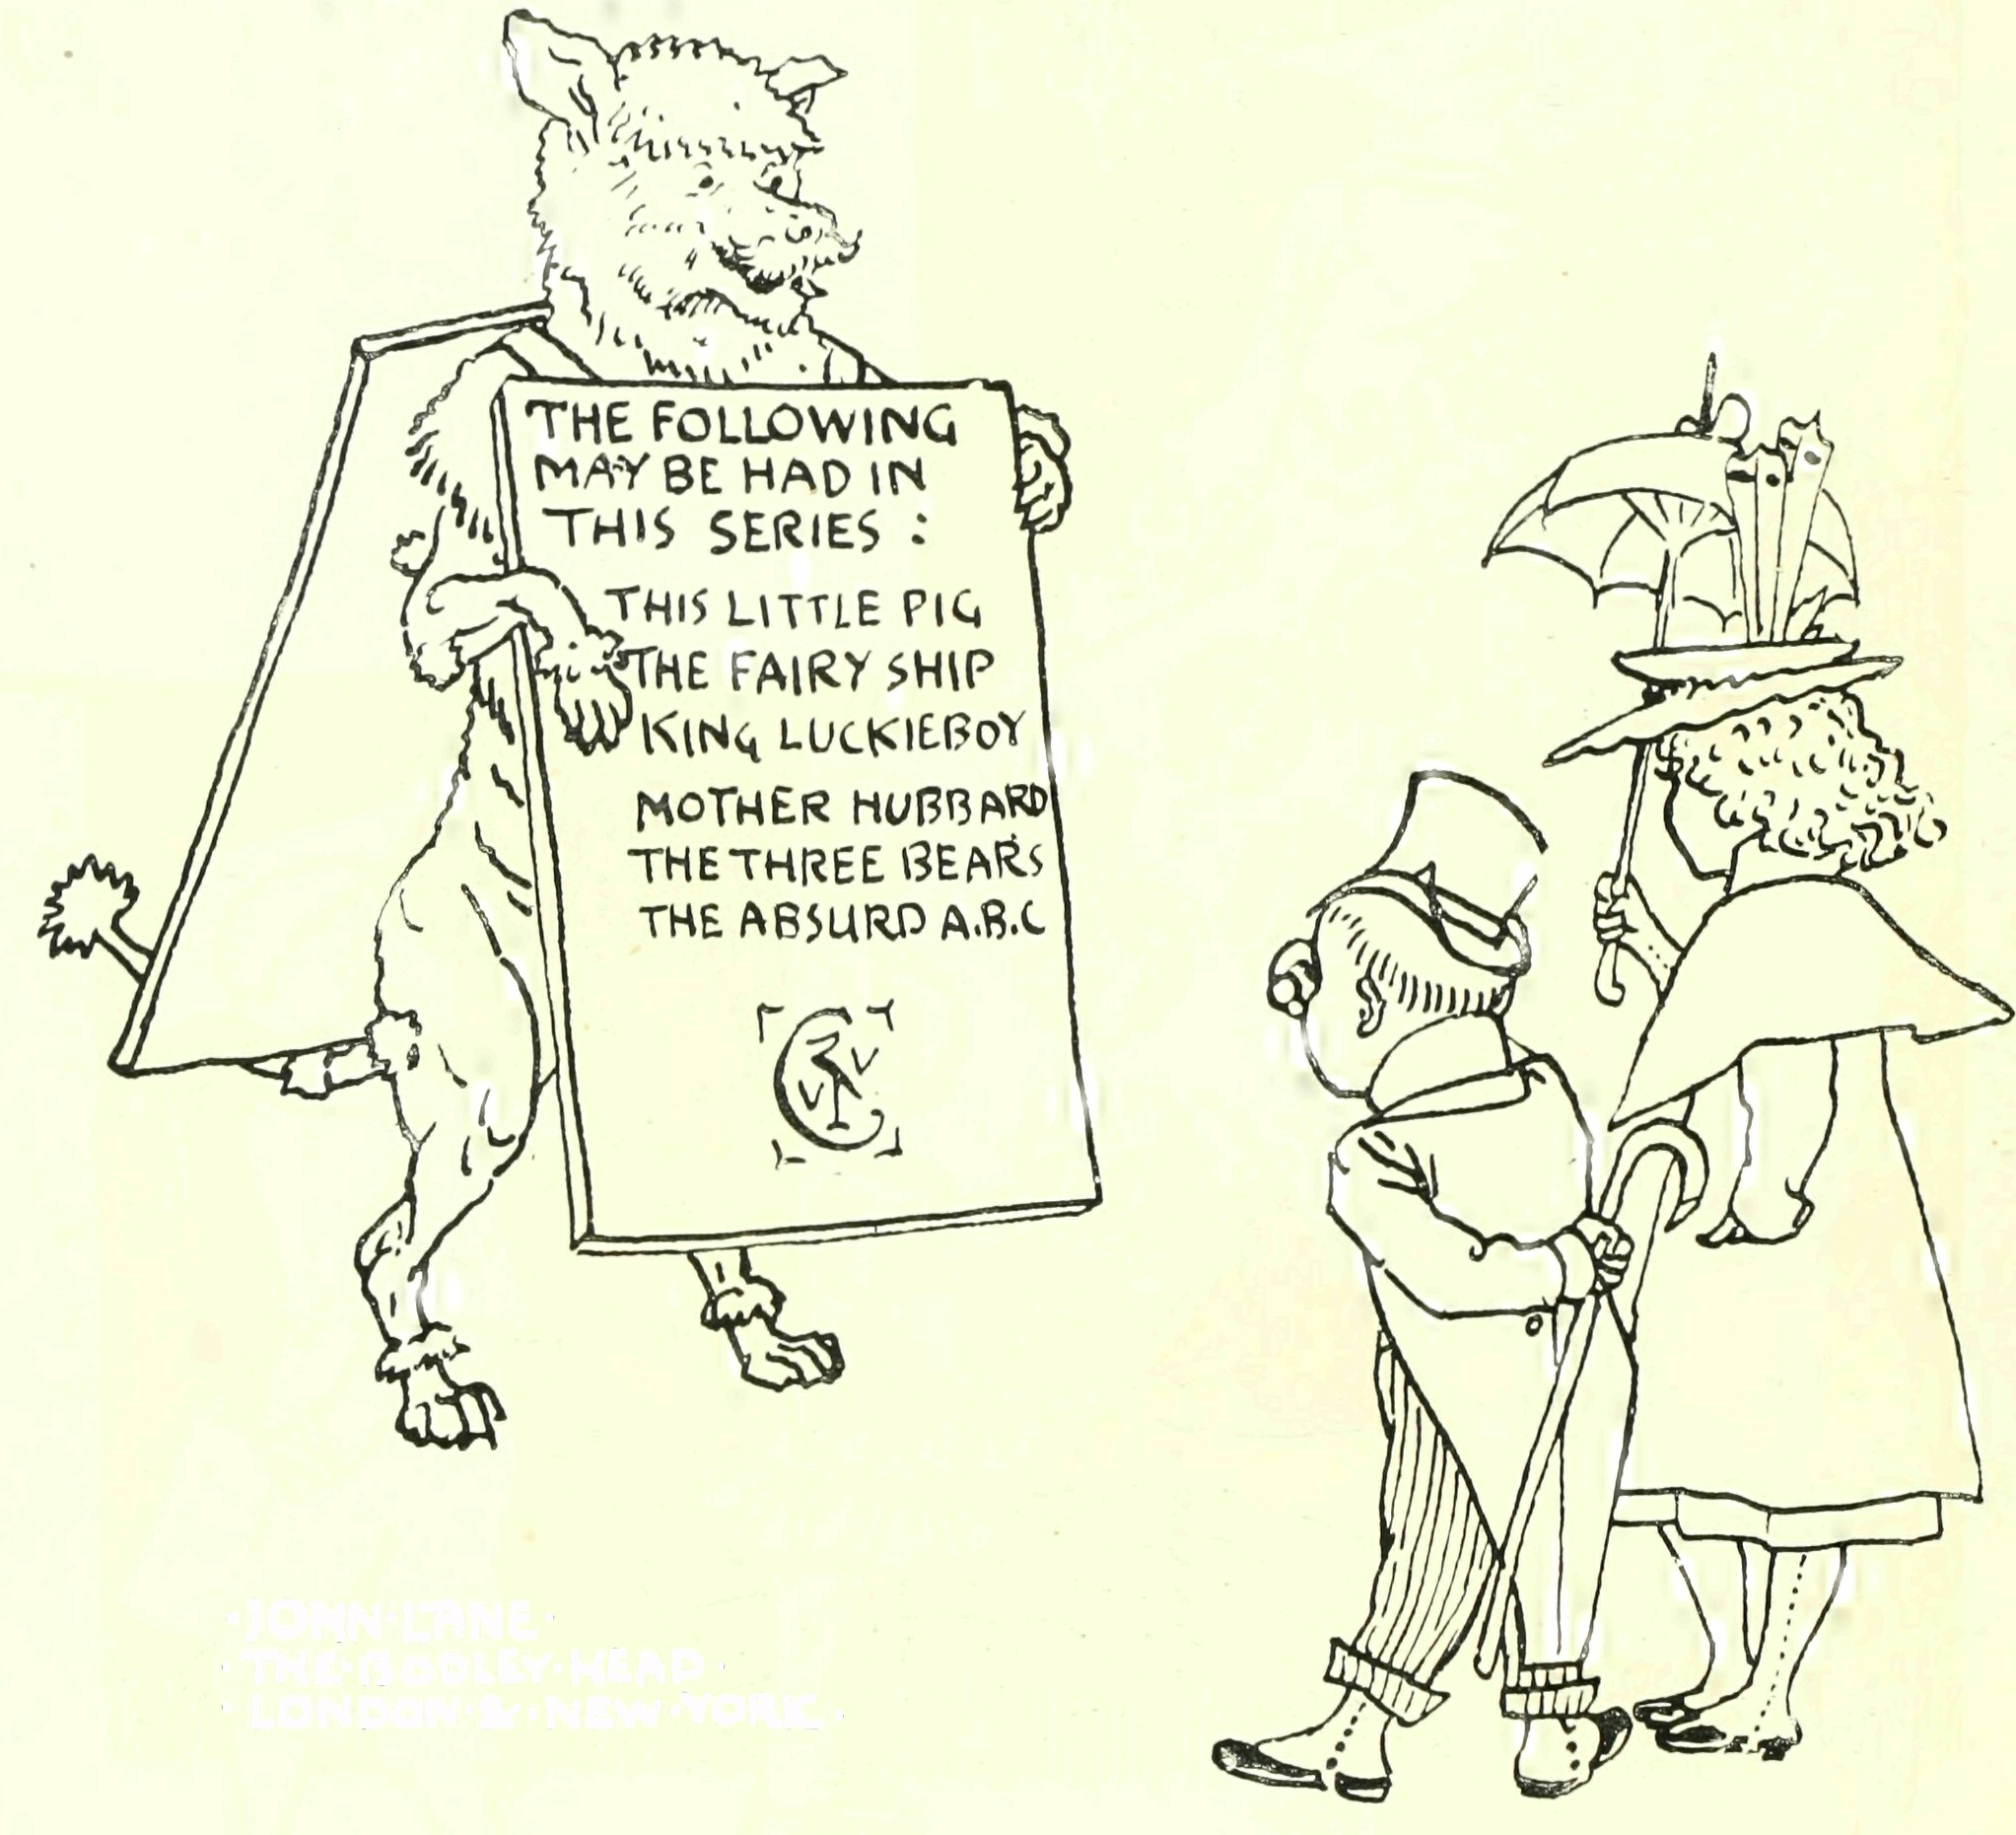 THE FOLLOWING
MAY BE HAD IN
THIS SERIES :
THIS LITTLE PIG
THE FAIRY SHIP
KING LUCKIEBOY
MOTHER HUBBARD
THE THREE BEARS
THE ABSURD A.B.C
·JOHN·LANE·
·THE·BODLEY·HEAD·
·LONDON·&·NEW·YORK·